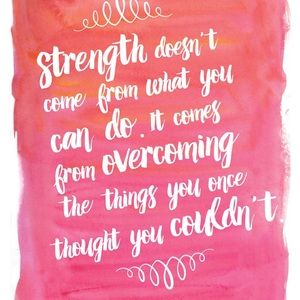 strength doesn't
come from what you
can do. It comes
from overcoming
the things you once
thought you couldn't.